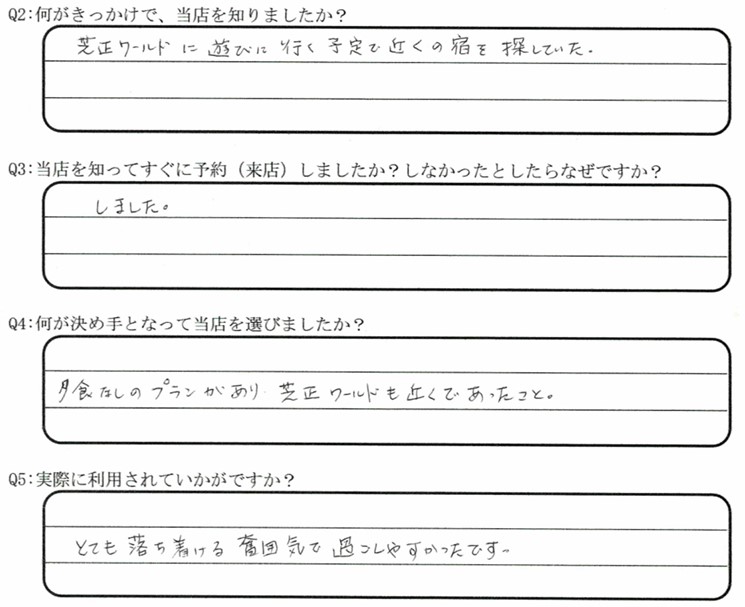 Q2:何がきっかけで、当店を知りましたか？
芝正ワールドに遊びに行く予定で近くの宿を探していた。
Q3:当店を知ってすぐに予約（来店）しましたか？しなかったとしたらなぜですか？
しました。
Q4:何が決め手となって当店を選びましたか？
夕食なしのプランがあり、芝正ワールドも近くであったこと。
Q5:実際に利用されていかがですか？
とても落ち着ける雰囲気で過ごしやすかったです。